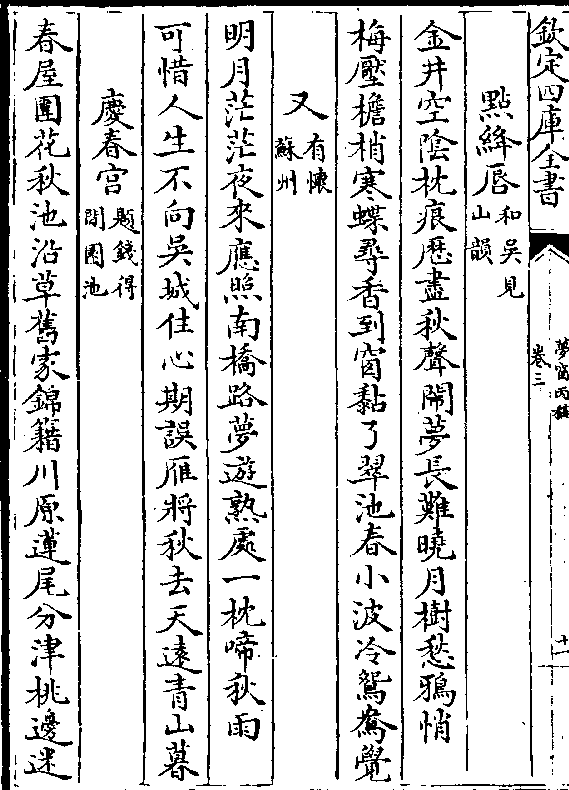 欽定四庫全書
夢窗丙稿
卷三
十一
點絳唇和吳見
山韻
金井空陰枕痕歷盡秋聲鬧夢長難曉月樹愁鴉悄
梅壓檐梢寒蝶尋香到窗黏了翠池春小波冷鴛鴦覺
又有懷
蘇州
明月茫茫夜來應照南橋路夢遊熟處一枕啼秋雨
可惜人生不向吳城住心期誤雁將秋去天遠青山暮
慶春宮題錢得
閒園池
春屋圍花秋池沿草舊家錦籍川原蓮尾分津桃邊迷